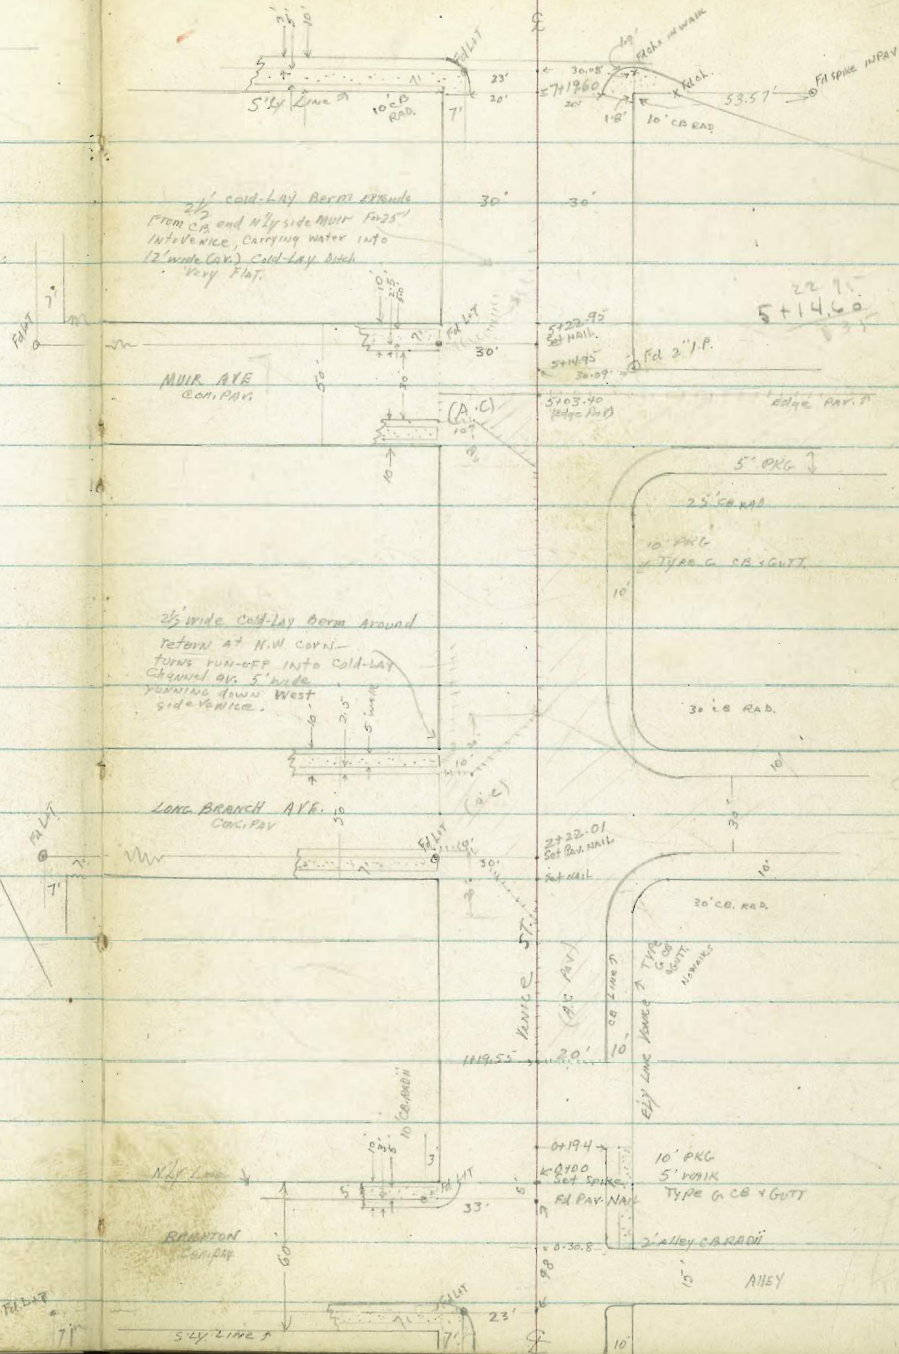 3'
5'
10'
Fd L&T
7'
23'
20'
5'Ly Line ↑
10' CB
RAD.
7'
℄
1.09'
Fd chx IN WALK
30.08'
57+19.60
20'
1.8'
Fd ch.
10' CB RAD
53.57'
Fd SPIKE IN PAV
2 1/2' Cold-Lay Berm Extends
From CB end N'ly side Muir For 25'
Into Venice, Carrying water into
12' wide (AV.) Cold-Lay Ditch
Very Flat.
30'
30'
22 95
5+14.60
8 35
7'
Fd L&T
10'
2.5'
5.0'
7'
Fd L&T
30'
5+22.95
Set NAIL
5+14.95
30.09'
Fd 2" I.P.
MUIR AVE
Con. PAV.
50'
30'
5+03.40
(Edge Pav)
Edge PAV. ↑
(A.C)
10'
10'
5' PKG
25' CB RAD
10' PKG
TYPE G CB & GUTT.
10'
2 1/2' wide Cold-Lay Berm around
return at N.W Corn-
turns run-off into Cold-Lay
Channel av. 5' wide
running down West
side Venice.
10'
2.5'
5' walk
30' CB RAD.
10'
10'
LONG BRANCH AVE.
CONC. PAV
50'
(A.C)
30'
Fd L&T
7'
7'
Fd L&T
7'
10'
30'
2+22.01
Set Pav. NAIL
Set NAIL
10'
30' CB. RAD.
VENICE ST.
(A.C PAV.)
CB LINE ↑
E'LY LINE VENICE ↑
TYPE
G CB
& GUTT.
No Walks
1+19.55
20'
10'
10' CB RADII
10'
3'
5'
3'
N'LY LINE
5'
Fd L&T
33'
0+19.4
0+00
Set Spike
Fd PAV. NAIL
5'
10' PKG
5' WALK
TYPE G CB & GUTT
BRIGHTON
Con. PAV
60'
0-30.8
2' Alley CB RADII
98
15'
ALLEY
Fd L&T
7'
S'LY LINE ↑
7'
Fd L&T
23'
7'
℄
10'